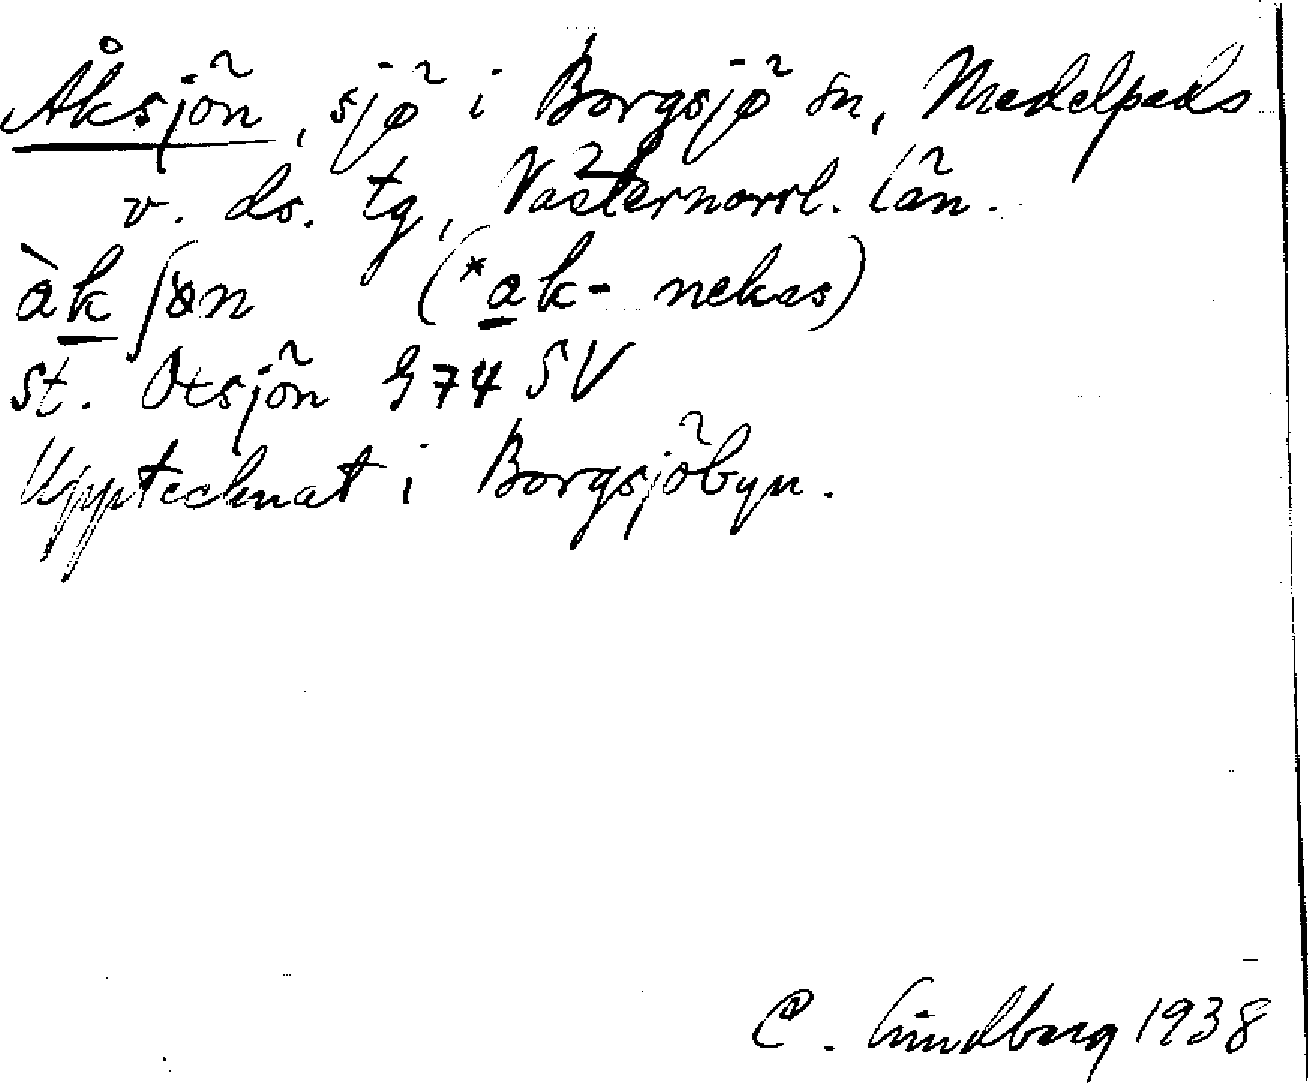 Åksjön, sjö i Borgsjö sn, Medelpads
v. ds. tg, Västernorrl. län.
àk ʃøn (*ak- nekas)
st. Otsjön G 74 SV
Upptecknat i Borgsjöbyn.
C. Lindberg 1938